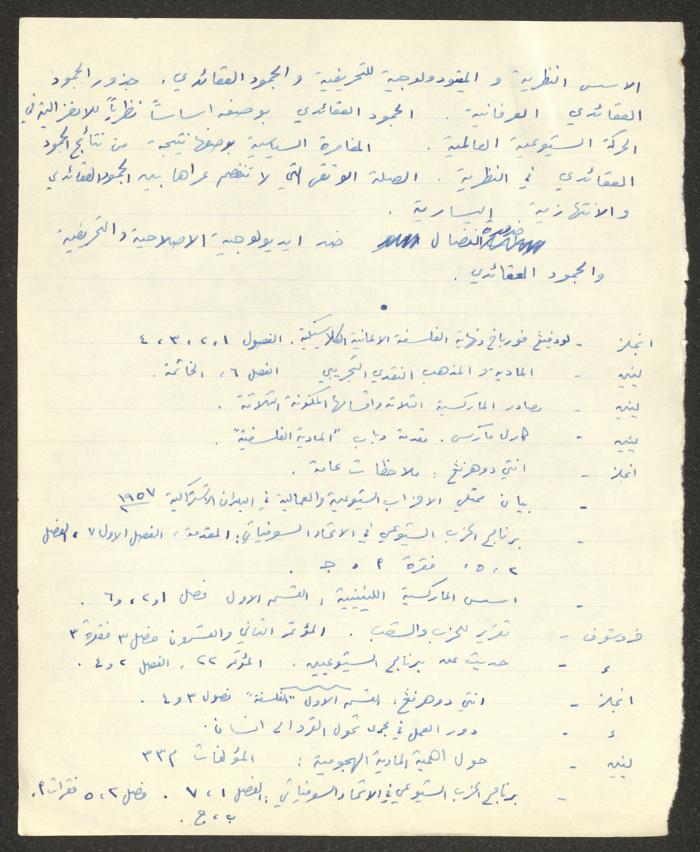 الاسس النظرية و الميتودولوجية للتحريفية والجمود العقائدي . جذور الجمود
العقائدي العرفانية . الجمود العقائدي بوصفه اساساً نظرياً للانعزالية في
الحركة الشيوعية العالمية . المغامرة السياسية بوصفها نتيجة من نتائج الجمود
العقائدي في النظرية . الصلة الوثقى التي لا تنفصم عراها بين الجمود العقائدي
والانتهازية اليسارية .
ضرورة النضال ضد ايديولوجية الاصلاحية والتحريفية
والجمود العقائدي .
انجلز - لودفيغ فورباخ ونهاية الفلسفة الالمانية الكلاسيكية . الفصول ١ ، ٢ ، ٣ ، ٤
لينين - المادية و المذهب النقدي التجريبي الفصل ٦ ، الخاتمة .
لينين - مصادر الماركسية الثلاثة واقسامها المكونة الثلاثة .
لينين - كارل ماركس . مقدمة وباب "المادية الفلسفية" .
انجلز - انتي دوهرنغ : ملاحظات عامة .
- بيان ممثلي الاحزاب الشيوعية والعمالية في البلدان الاشتراكية ١٩٥٧
- برنامج الحزب الشيوعي في الاتحاد السوفياتي : المقدمة ، الفصل الاول ٧ ، الفصل
٢ ، ٥ ، فقرة ٩ ، جـ .
- اسس الماركسية اللينينية ، القسم الاول فصل ١ و ٢ ، و ٦ .
خروتشوف - تقرير للحزب والشعب . المؤتمر الثاني والعشرون فصل ٣ فقرة ٣
ء - حديث عن برنامج الشيوعيين . المؤتمر ٢٢ ، الفصل ٢ و ٤ .
انجلز - انتي دوهرنغ ، القسم الاول "الفلسفة" فصول ٣ و ٤ .
ء - دور العمل في مجرى تحول القرد الى انسان .
لينين - حول اهمية المادية الهجومية : المؤلفات م ٣٣
- برنامج الحزب الشيوعي في الاتحاد السوفياتي : الفصل ١ ، ٧ . فصل ٢ ، ٥ فقرات ٩ ،
ب ، ج .